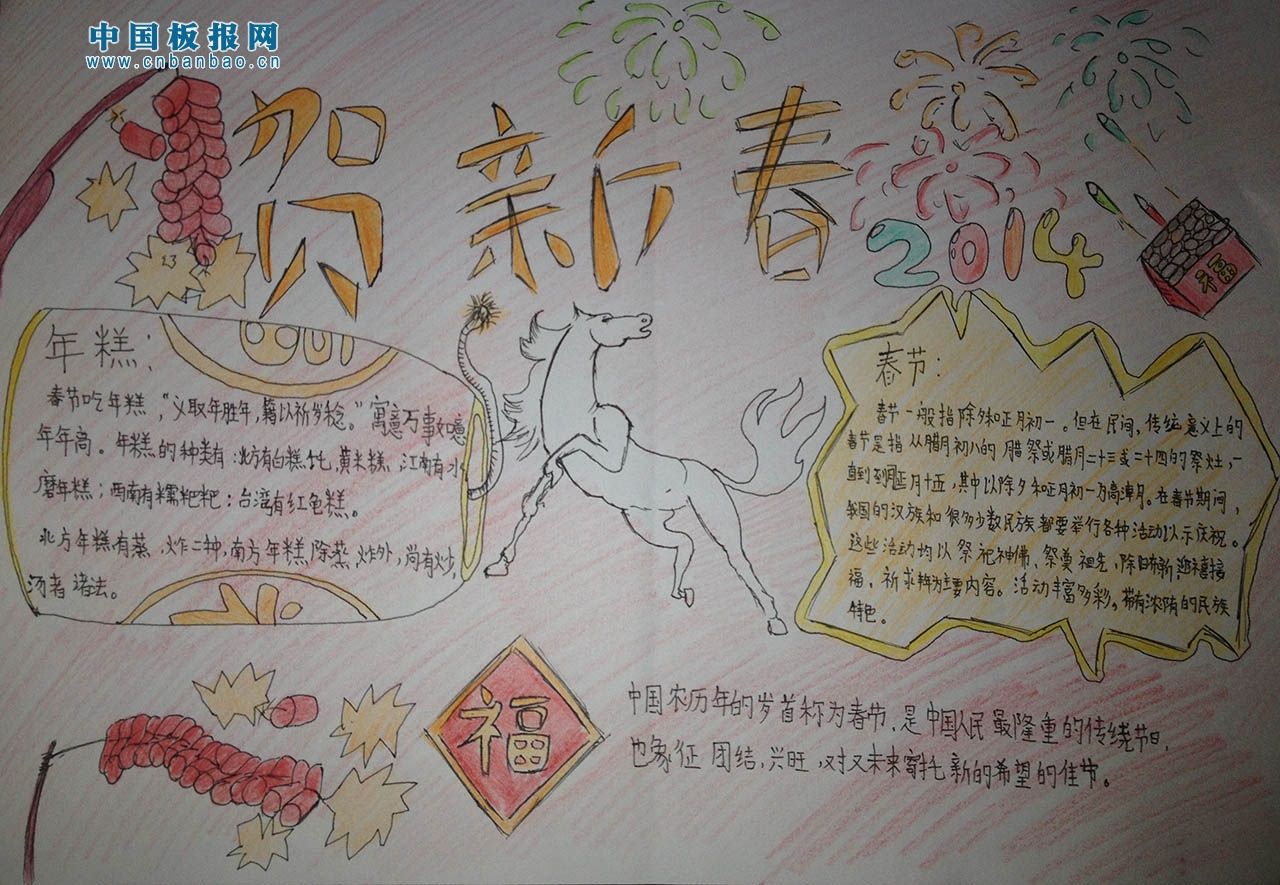 中国板报网
www.cnbanbao.cn
贺新春
2014
福
年糕：
春节吃年糕，“义取年胜年，藉以祈岁稔。”寓意万事如意
年年高。年糕的种类有：北方有白糕饦，黄米糕，江南有水
磨年糕；西南有糯粑粑；台湾有红龟糕。
北方年糕有蒸，炸二种，南方年糕除蒸，炸外，尚有炒，
汤者诸法。
春节：
春节一般指除夕和正月初一。但在民间，传统意义上的
春节是指从腊月初八的腊祭或腊月二十三或二十四的祭灶，一
直到正月十五，其中以除夕和正月初一为高潮月。在春节期间，
我国的汉族和很多少数民族都要举行各种活动以示庆祝。
这些活动均以祭祀神佛、祭奠祖先、除旧布新迎禧接
福、祈求为主要内容。活动丰富多彩。带有浓陏的民族
特色。
福
中国农历年的岁首称为春节，是中国人民最隆重的传统节日，
也象征团结，兴旺，对又未来寄托新的希望的佳节。